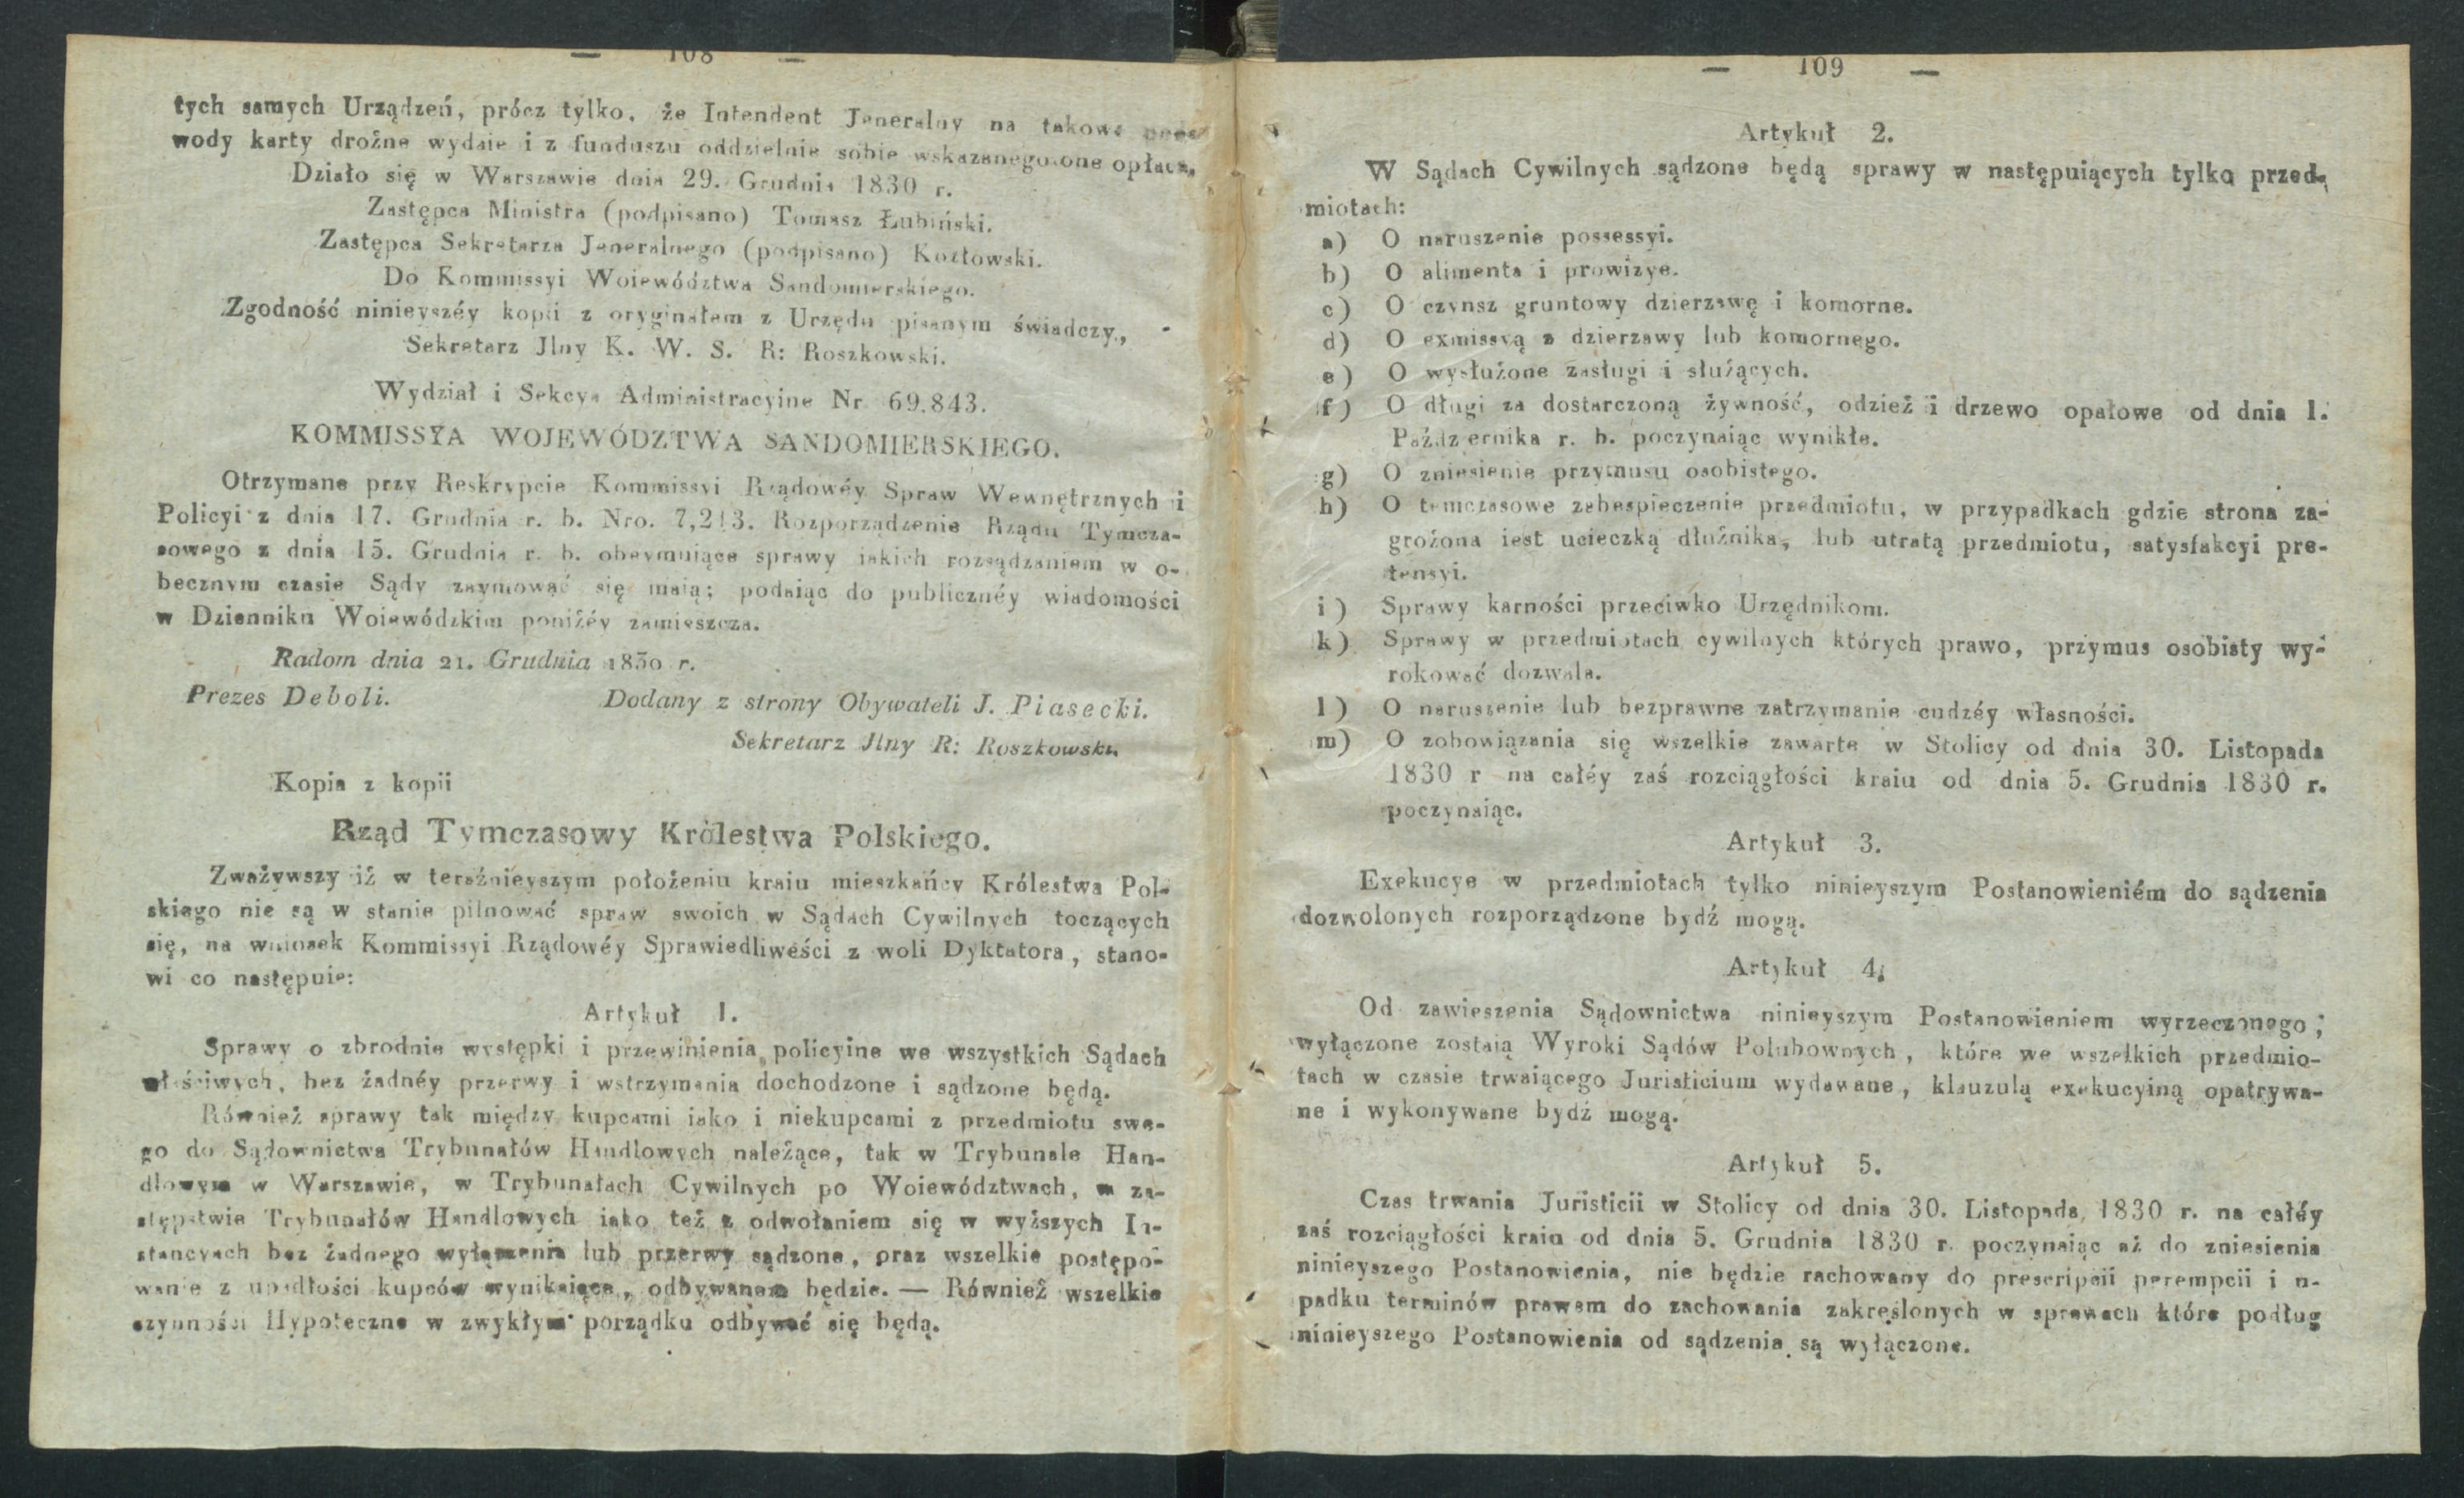 — 108 —
tych samych Urządzeń, prócz tylko, że Intendent Jeneralny na takowe
wody karty drożne wydaie i z funduszu oddzielnie sobie wskazanego one opłaca,
Działo się w Warszawie dnia 29. Grudnia 1830 r.
Zastępca Ministra (podpisano) Tomasz Łubiński.
Zastępca Sekretarza Jeneralnego (podpisano) Kozłowski.
Do Kommissyi Woiewództwa Sandomierskiego.
Zgodność ninieyszéy kopii z oryginałem z Urzędu pisanym świadczy,
Sekretarz Jlny K. W. S. R: Roszkowski.
Wydział i Sekcya Administracyine Nr 69.843.
KOMMISSYA WOJEWÓDZTWA SANDOMIERSKIEGO.
Otrzymane przy Reskrypcie Kommissyi Rządowéy Spraw Wewnętrznych i
Policyi z dnia 17. Grudnia r. b. Nro. 7,213. Rozporządzenie Rządu Tymcza-
sowego z dnia 15. Grudnia r. b. obeymuiące sprawy iakich rozsądzaniem w o-
becznym czasie Sądy zaymować się maią; podaiąc do publicznéy wiadomości
w Dzienniku Woiewódzkim poniżéy zamieszcza.
Radom dnia 21. Grudnia 1830 r.
Prezes Deboli. Dodany z strony Obywateli J. Piasecki.
Sekretarz Jlny R: Roszkowski.
Kopia z kopii
Rząd Tymczasowy Królestwa Polskiego.
Zważywszy iż w teraźnieyszym położeniu kraiu mieszkańcy Królestwa Pol-
skiego nie są w stanie pilnować spraw swoich w Sądach Cywilnych toczących
się, na wniosek Kommissyi Rządowéy Sprawiedliweści z woli Dyktatora, stano-
wi co następuie:
Artykuł 1.
Sprawy o zbrodnie występki i przewinienia policyine we wszystkich Sądach
właściwych, bez żadnéy przerwy i wstrzymania dochodzone i sądzone będą.
Również sprawy tak między kupcami iako i niekupcami z przedmiotu swe-
go do Sądownictwa Trybunałów Handlowych należące, tak w Trybunale Han-
dlowym w Warszawie, w Trybunałach Cywilnych po Woiewództwach, w za-
stępstwie Trybunałów Handlowych iako też z odwołaniem się w wyższych In-
stancyach bez żadnego wyłączenia lub przerwy sądzone, oraz wszelkie postępo-
wanie z upadłości kupców wynikaiące, odbywanem będzie. — Również wszelkie
czynności Hypoteczne w zwykłym porządku odbywać się będą.
— 109 —
Artykuł 2.
W Sądach Cywilnych sądzone będą sprawy w następuiących tylko przed-
miotach:
a) O naruszenie possessyi.
b) O alimenta i prowizye.
c) O czynsz gruntowy dzierzawę i komorne.
d) O exmissyą z dzierzawy lub komornego.
e) O wysłużone zasługi i służących.
f) O długi za dostarczoną żywność, odzież i drzewo opałowe od dnia 1.
Października r. b. poczynaiąc wynikłe.
g) O zniesienie przymusu osobistego.
h) O temczasowe zabespieczenie przedmiotu, w przypadkach gdzie strona za-
grożona iest ucieczką dłużnika, lub utratą przedmiotu, satysfakcyi pre-
tensyi.
i) Sprawy karności przeciwko Urzędnikom.
k) Sprawy w przedmiotach cywilnych których prawo, przymus osobisty wy-
rokować dozwala.
l) O naruszenie lub bezprawne zatrzymanie cudzéy własności.
m) O zobowiązania się wszelkie zawarte w Stolicy od dnia 30. Listopada
1830 r na całéy zaś rozciągłości kraiu od dnia 5. Grudnia 1830 r.
poczynaiąc.
Artykuł 3.
Exekucye w przedmiotach tylko ninieyszym Postanowieniém do sądzenia
dozwolonych rozporządzone bydź mogą.
Artykuł 4.
Od zawieszenia Sądownictwa ninieyszym Postanowieniem wyrzeczonego,
wyłączone zostaią Wyroki Sądów Polubownych, które we wszelkich przedmio-
tach w czasie trwaiącego Juristicium wydawane, klauzulą exekucyiną opatrywa-
ne i wykonywane bydź mogą.
Artykuł 5.
Czas trwania Juristicii w Stolicy od dnia 30. Listopada 1830 r. na całéy
zaś rozciągłości kraiu od dnia 5. Grudnia 1830 r. poczynaiąc aż do zniesienia
ninieyszego Postanowienia, nie będzie rachowany do prescripcii perempcii i u-
padku terminów prawem do zachowania zakreślonych w sprawach które podług
ninieyszego Postanowienia od sądzenia są wyłączone.